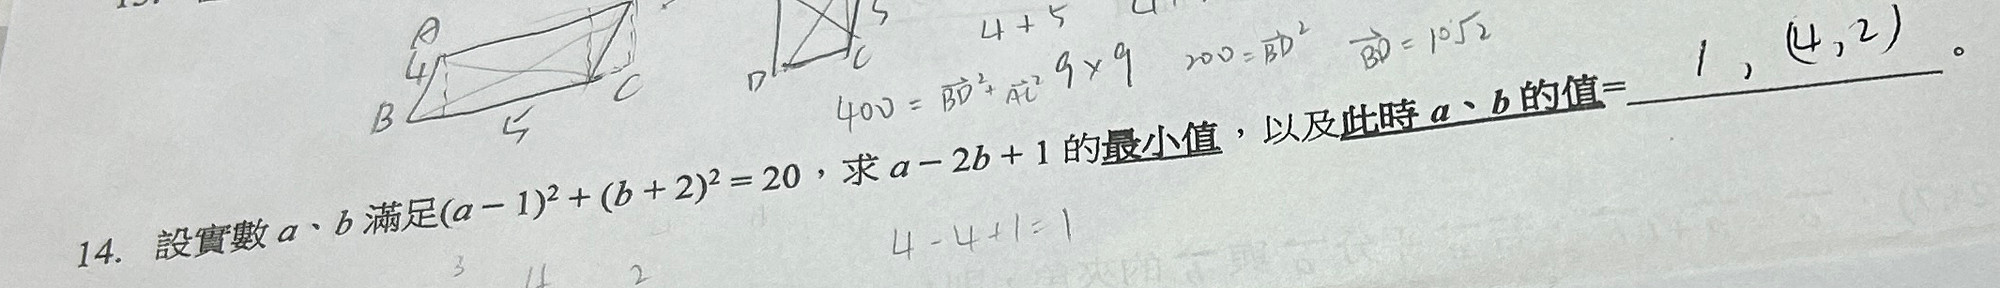 A
4
B
5
C
D
C
5
4+5
9×9
400 = BD²+AC²
200=BD²
BD=10√2
1,(4,2)。
14. 設實數 a、b 滿足(a−1)²+(b+2)²=20,求 a−2b+1 的最小值,以及此時 a、b 的值=
4-4+1=1
3 4 2